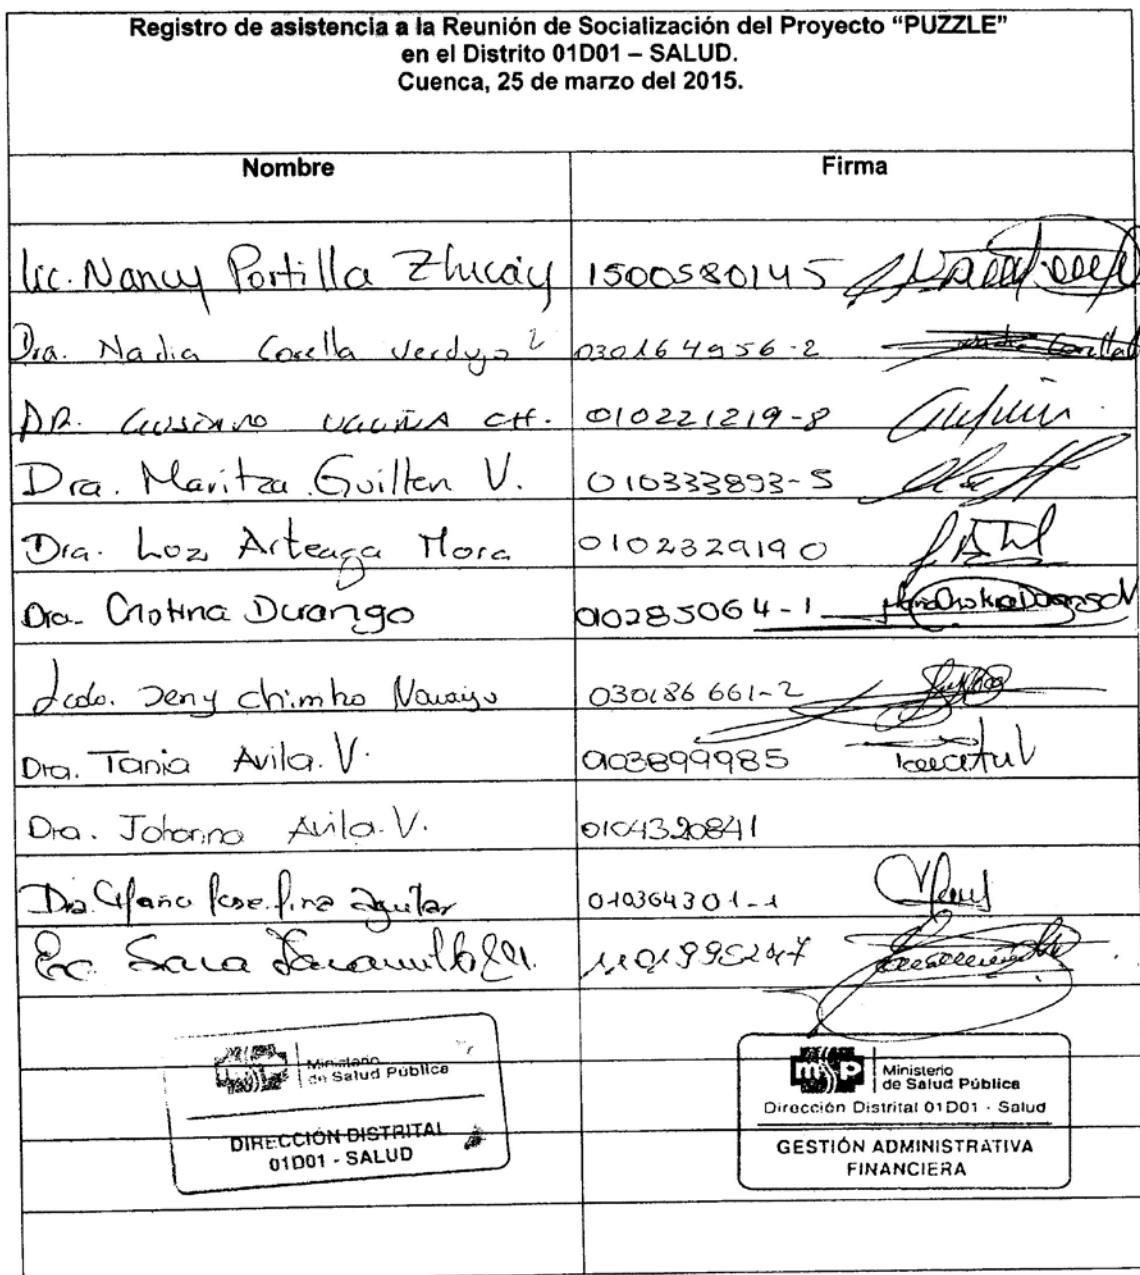 Registro de asistencia a la Reunión de Socialización del Proyecto “PUZZLE”
en el Distrito 01D01 – SALUD.
Cuenca, 25 de marzo del 2015.
Nombre Firma
Lic. Nancy Portilla Zhucay 1500580145
Dra. Nadia Corella Verdugo 030164956-2
DR. CH. 010221219-8
Dra. Maritza Guillen V. 010333893-5
Dra. Luz Arteaga Mora 0102329190
Dra. Cristina Durango 010285064-1
Lcdo. Jeny Chimbo 030186661-2
Dra. Tania Avila. V. 0103899985
Dra. Johanna Avila. V. 0104320841
Dra. Josefina Aguilar 010364301-1
Ec. Sara Jaramillo
Ministerio
de Salud Pública
DIRECCIÓN DISTRITAL
01D01 - SALUD
msp
Ministerio
de Salud Pública
Dirección Distrital 01D01 - Salud
GESTIÓN ADMINISTRATIVA
FINANCIERA